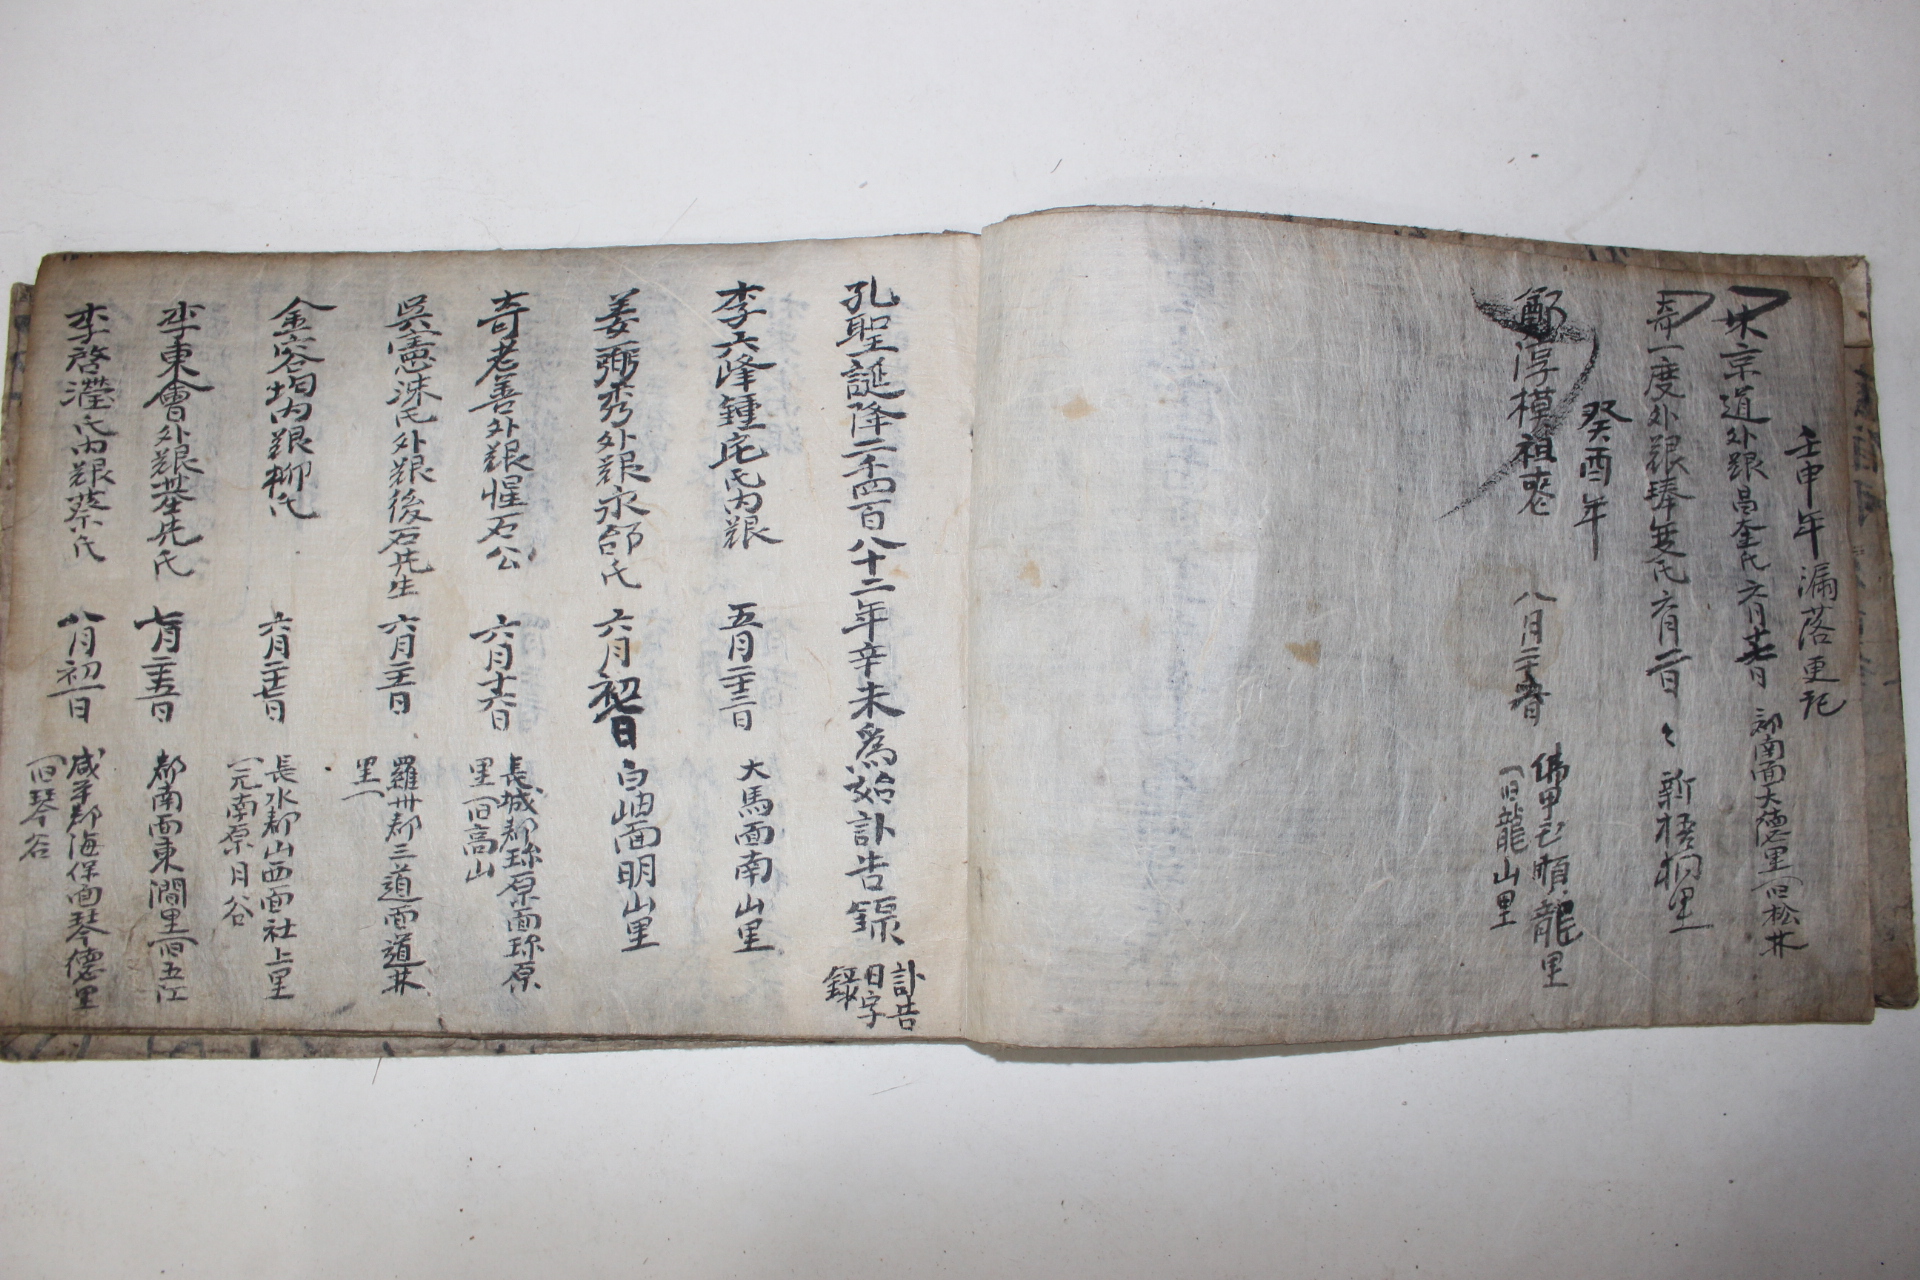 壬申年漏落更記
宋京道外艱昌奎氏六月廿七日 郡南面大德里(旧松林
奇一度外艱琫燮氏六月二日 〻 新梧桐里
癸酉年
鄭淳模祖喪 八月二十春日 佛甲面順龍里
(旧龍山里
孔聖誕降二千四百八十二年辛未為始訃告錄
訃告
日字
錄
李六峰鍾宅氏内艱 五月二十三日 大馬面南山里
姜弼秀外艱永郃氏 六月初一日 白岫面明山里
奇老善外艱惺石公 六月十六日 長城郡珍原面珍原
里(旧高山
吳憲洙氏外艱後石先生 六月二十二日 羅州郡三道面道林
里一
金容均内艱柳氏 六月二十七日 長水郡山西面社上里
(元南原月谷
李東會外艱基先氏 七月二十五日 郡南面東澗里(旧五江
李啓瀅氏内艱蔡氏 八月初一日 咸平郡海保面琴德里
(旧琴谷